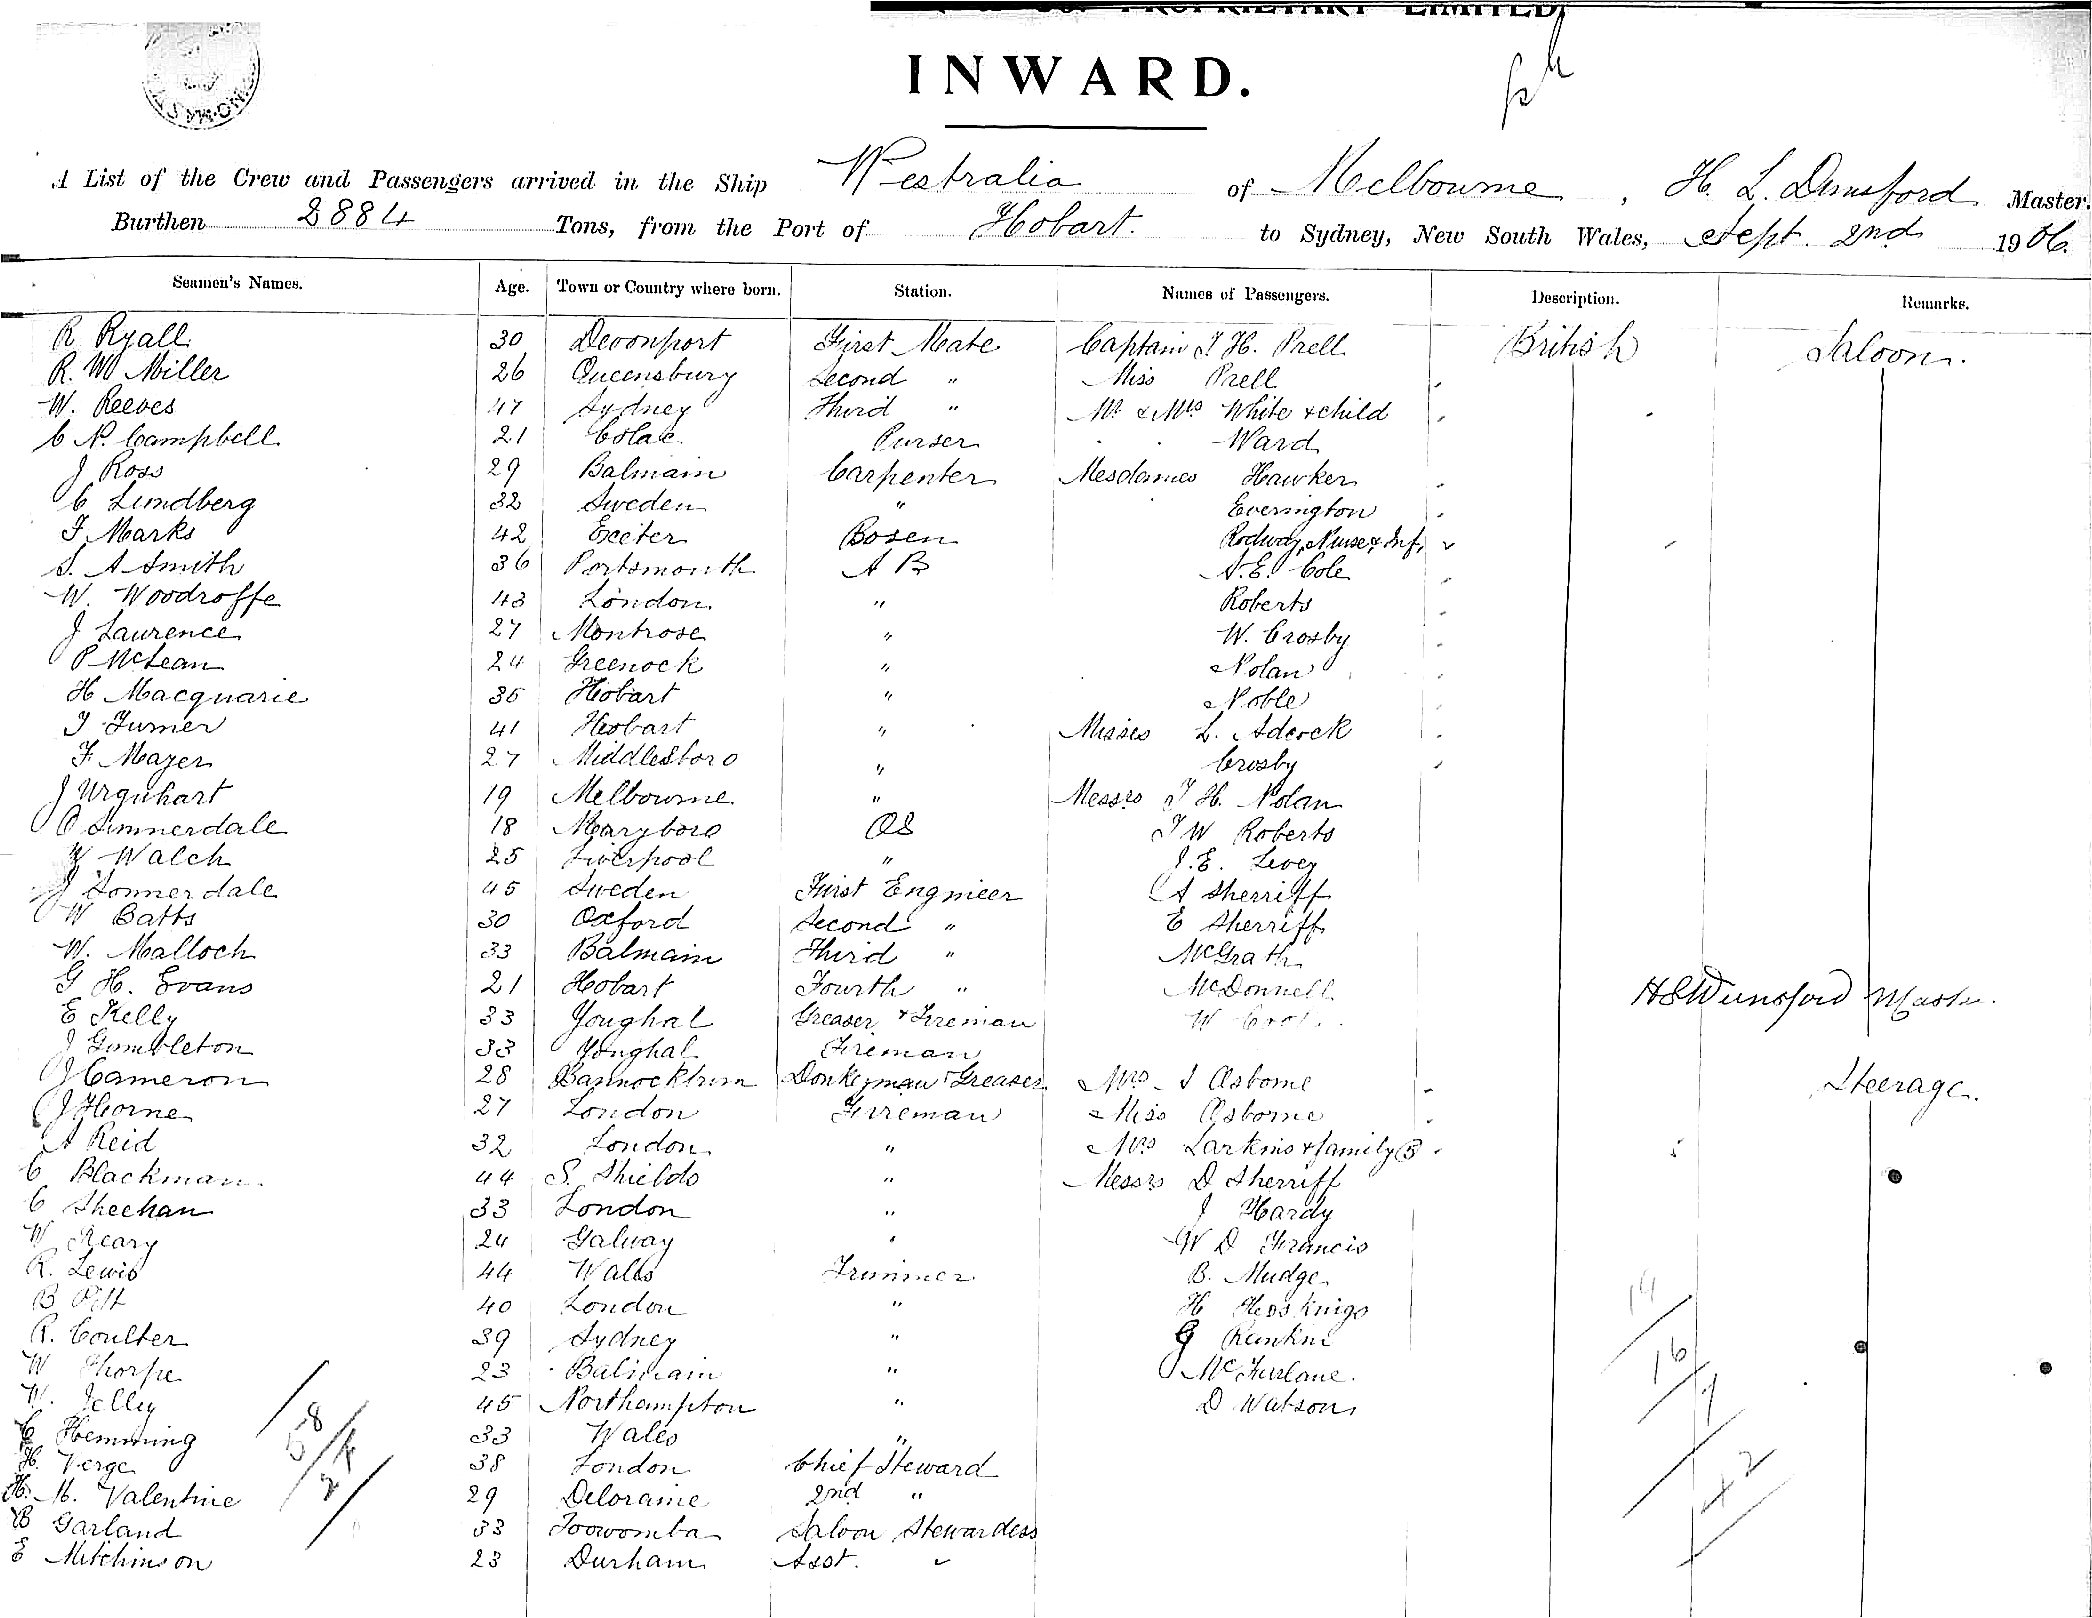 PROPRIETARY LIMITED
INWARD.
A List of the Crew and Passengers arrived in the Ship Westralia of Melbourne, H. L. Dunsford Master,
Burthen 2884 Tons, from the Port of Hobart. to Sydney, New South Wales, Sept. 2nd 1906.
Seamen's Names. Age. Town or Country where born. Station. Names of Passengers. Description. Remarks.
R Ryall 30 Devonport First Mate Captain J H. Prell British Saloon.
R. W Miller 26 Queensbury Second " Miss Prell
W. Reeves 47 Sydney Third " Mr & Mrs White & child
C N. Campbell 21 Colac Purser Ward
J Ross 29 Balmain Carpenter Mesdames Hawker
C Lundberg 32 Sweden " Everington
F Marks 42 Exeter Bosen Rodway, Nurse & Inf,
S. A Smith 36 Portsmouth A B A. E. Cole
W. Woodroffe 43 London " Roberts
J Laurence 27 Montrose " W. Crosby
P McLean 24 Greenock " Nolan
H Macquarie 35 Hobart " Noble
T Turner 41 Hobart " Misses L. Adcock
F. Mayer 27 Middlesboro " Crosby
J Urquhart 19 Melbourne " Messrs T H. Nolan
O Sunnerdale 18 Maryboro OS T W Roberts
W Walch 25 Liverpool " J. E. Levey
J Sonnerdale 45 Sweden First Engineer A Sherriff
W Batts 30 Oxford Second " E Sherriff
W. Malloch 33 Balmain Third " McGrath
G H. Evans 21 Hobart Fourth " McDonnell HLDunsford Master.
E Kelly 33 Youghal Greaser & Fireman W
J Gumbleton 33 Youghal Fireman
J Cameron 28 Bannockburn Donkeyman & Greaser Mrs J Osborne Steerage.
J Horne 27 London Firreman Miss Osborne
A Reid 32 London " Mrs Larkins & family (3
C Blackman 44 S. Shields " Messrs D Sherriff
C Sheehan 33 London " J Hardy
W Reary 24 Galway " W D Francis
R. Lewis 44 Wales Trimmer B. Mudge
B Pitt 40 London " H Hosknigs
R. Coulter 39 Sydney " G Rankine
W Thorpe 23 Balmain " McFarlane.
W. Jelley 45 Northampton " D Watson
C Hemming 33 Wales "
H. Verge 38 London Chief Steward
H. M. Valentine 29 Deloraine 2nd "
B Garland 33 Toowomba Saloon Stewardess
E Mitchinson 23 Durham Asst. "
58
14
16
42